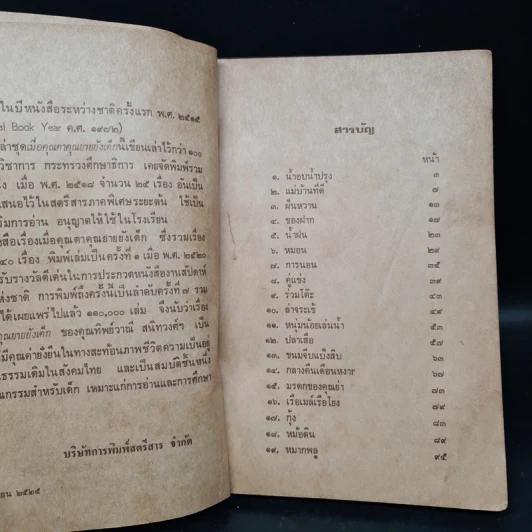 ในปีหนังสือระหว่างชาติครั้งแรก พ.ศ. ๒๕๑๕
al Book Year ค.ศ. ๑๙๗๒)
เล่าชุดเมื่อคุณตาคุณยายยังเด็กนี้เขียนเล่าไว้กว่า ๑๐๐
วิชาการ กระทรวงศึกษาธิการ เคยจัดพิมพ์รวม
เมื่อ พ.ศ. ๒๕๑๘ จำนวน ๒๕ เรื่อง อันเป็น
เสนอไว้ในสตรีสารภาคพิเศษระยะต้น ใช้เป็น
ริมการอ่าน อนุญาตให้ใช้ในโรงเรียน
สือเรื่องเมื่อคุณตาคุณยายยังเด็ก ซึ่งรวมเรื่อง
๔๐ เรื่อง พิมพ์เล่มเป็นครั้งที่ ๑ เมื่อ พ.ศ. ๒๕๒๐
รับรางวัลดีเด่นในการประกวดหนังสืองานสัปดาห์
ห่งชาติ การพิมพ์ถึงครั้งนี้เป็นลำดับครั้งที่ ๗ รวม
ได้เผยแพร่ไปแล้ว ๑๑๐,๐๐๐ เล่ม จึงนับว่าเรื่อง
คุณยายยังเด็ก ของคุณทิพย์วาณี สนิทวงศ์ฯ เป็น
มีคุณค่ายั่งยืนในทางสะท้อนภาพชีวิตความเป็นอยู่
ธรรมเดิมในสังคมไทย และเป็นสมบัติชิ้นหนึ่ง
ณกรรมสำหรับเด็ก เหมาะแก่การอ่านและการศึกษา
บริษัทการพิมพ์สตรีสาร จำกัด
ยน ๒๕๒๕
สารบัญ
หน้า
๑. น้ำอบน้ำปรุง ๓
๒. แม่บ้านที่ดี ๗
๓. ผืนหวาน ๑๓
๔. ของฝาก ๑๗
๕. น้ำฝน ๒๓
๖. หมอน ๒๙
๗. การนอน ๓๕
๘. คู่แข่ง ๓๙
๙. ร่วมโต๊ะ ๔๓
๑๐. ล่าจระเข้ ๔๗
๑๑. หนุ่มน้อยเล่นน้ำ ๕๓
๑๒. ปลาเสือ ๕๗
๑๓. ขนมจีบแป้งสิบ ๖๓
๑๔. กลางคืนเดือนหงาย ๖๗
๑๕. มรดกของคุณย่า ๗๓
๑๖. เรือเมล์เรือโยง ๗๙
๑๗. กุ้ง ๘๓
๑๘. หม้อดิน ๘๙
๑๙. หมากพลู ๙๕